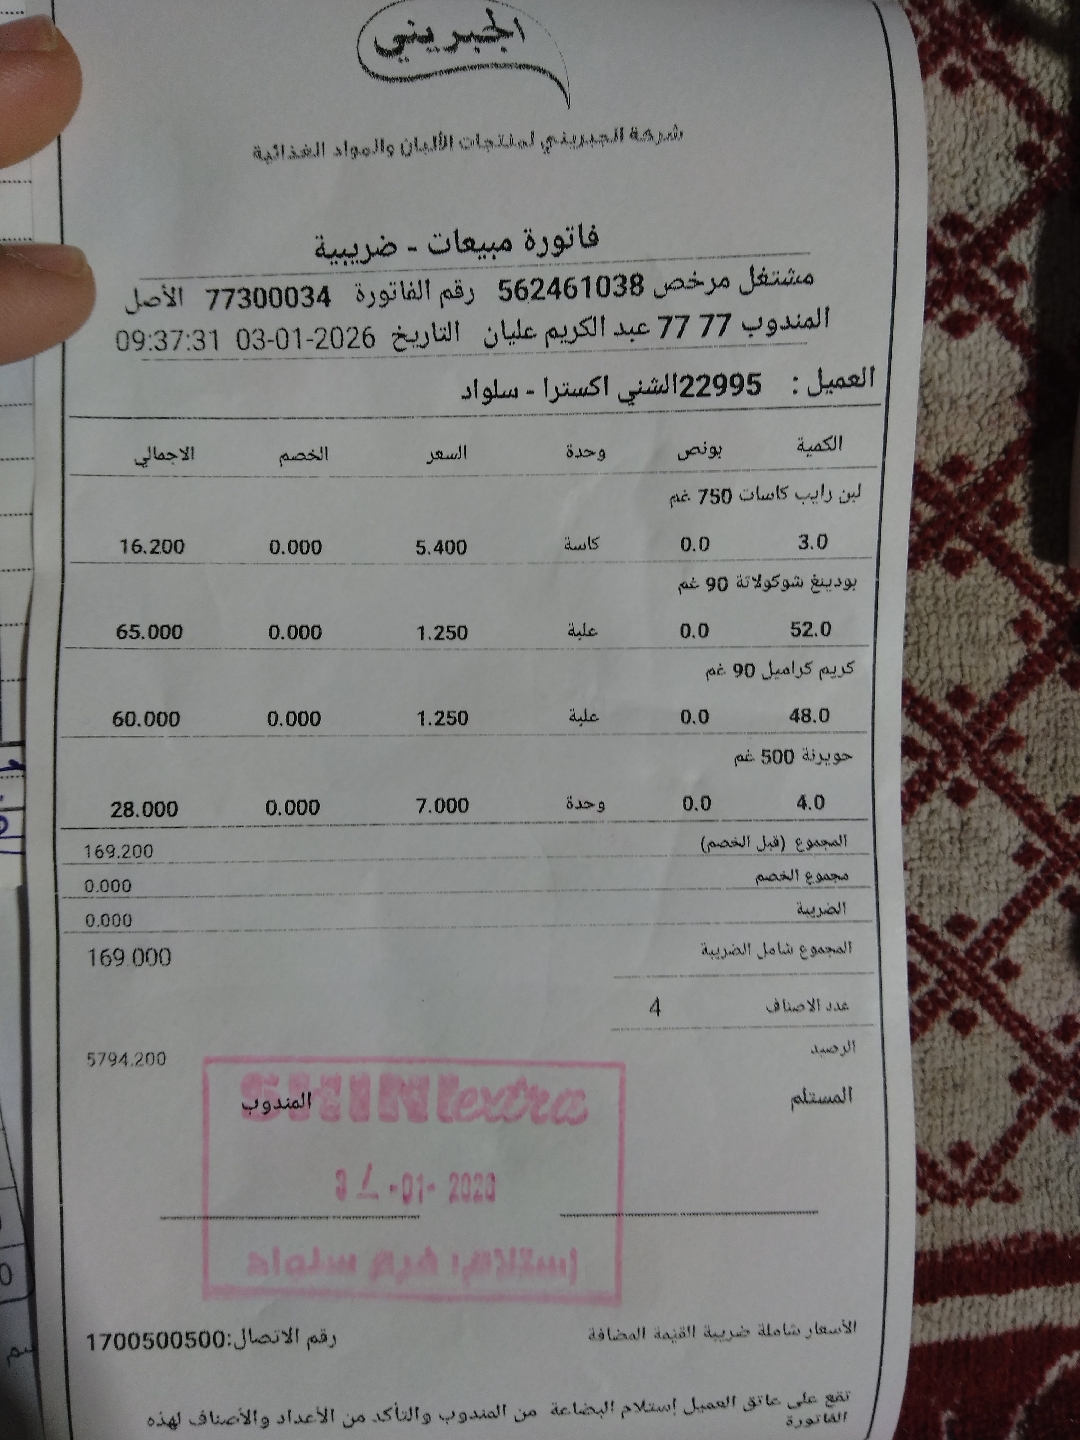 الجبريني
شركة الجبريني لمنتجات الألبان والمواد الغذائية
فاتورة مبيعات - ضريبية
مشتغل مرخص 562461038 رقم الفاتورة 77300034 الأصل
المندوب 77 77 عبد الكريم عليان التاريخ 03-01-2026 09:37:31
العميل : 22995الشني اكسترا - سلواد
الكمية بونص وحدة السعر الخصم الاجمالي
لبن رايب كاسات 750 غم
3.0 0.0 كاسة 5.400 0.000 16.200
بودينغ شوكولاتة 90 غم
52.0 0.0 علبة 1.250 0.000 65.000
كريم كراميل 90 غم
48.0 0.0 علبة 1.250 0.000 60.000
حويرنة 500 غم
4.0 0.0 وحدة 7.000 0.000 28.000
المجموع (قبل الخصم) 169.200
مجموع الخصم 0.000
الضريبة 0.000
المجموع شامل الضريبة 169.000
عدد الاصناف 4
الرصيد 5794.200
المستلم المندوب
SHINI extra
-01- 2026
إستلام فرع سلواد
الأسعار شاملة ضريبة القيمة المضافة رقم الاتصال:1700500500
تقع على عاتق العميل إستلام البضاعة من المندوب والتأكد من الأعداد والأصناف لهذه
الفاتورة